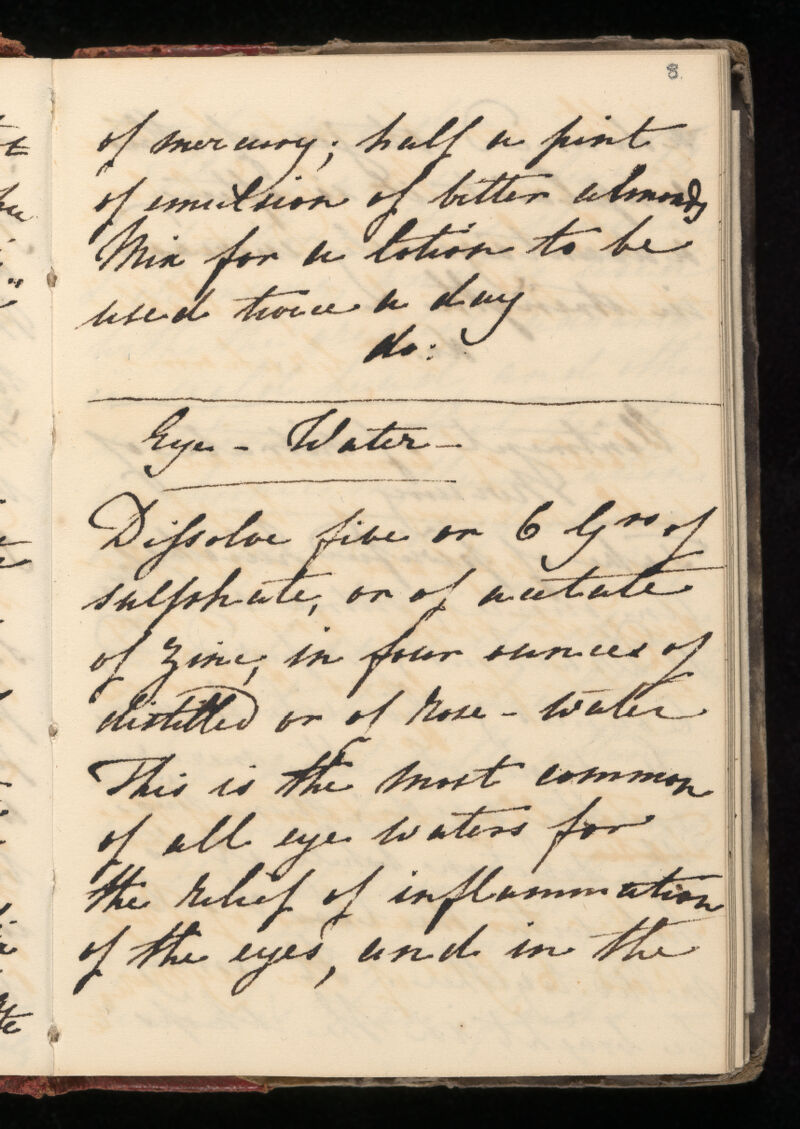 8.
of mercury; half a pint
of emulsion of bitter almonds
Mix for a lotion to be
used twice a day
do:
Eye - Water -
Dissolve five or 6 Grs of
sulphate, or of acetate
of Zinc, in four ounces of
distilled or of Rose - water
This is the most common
of all eye waters for
the relief of inflammation
of the eyes, and in the